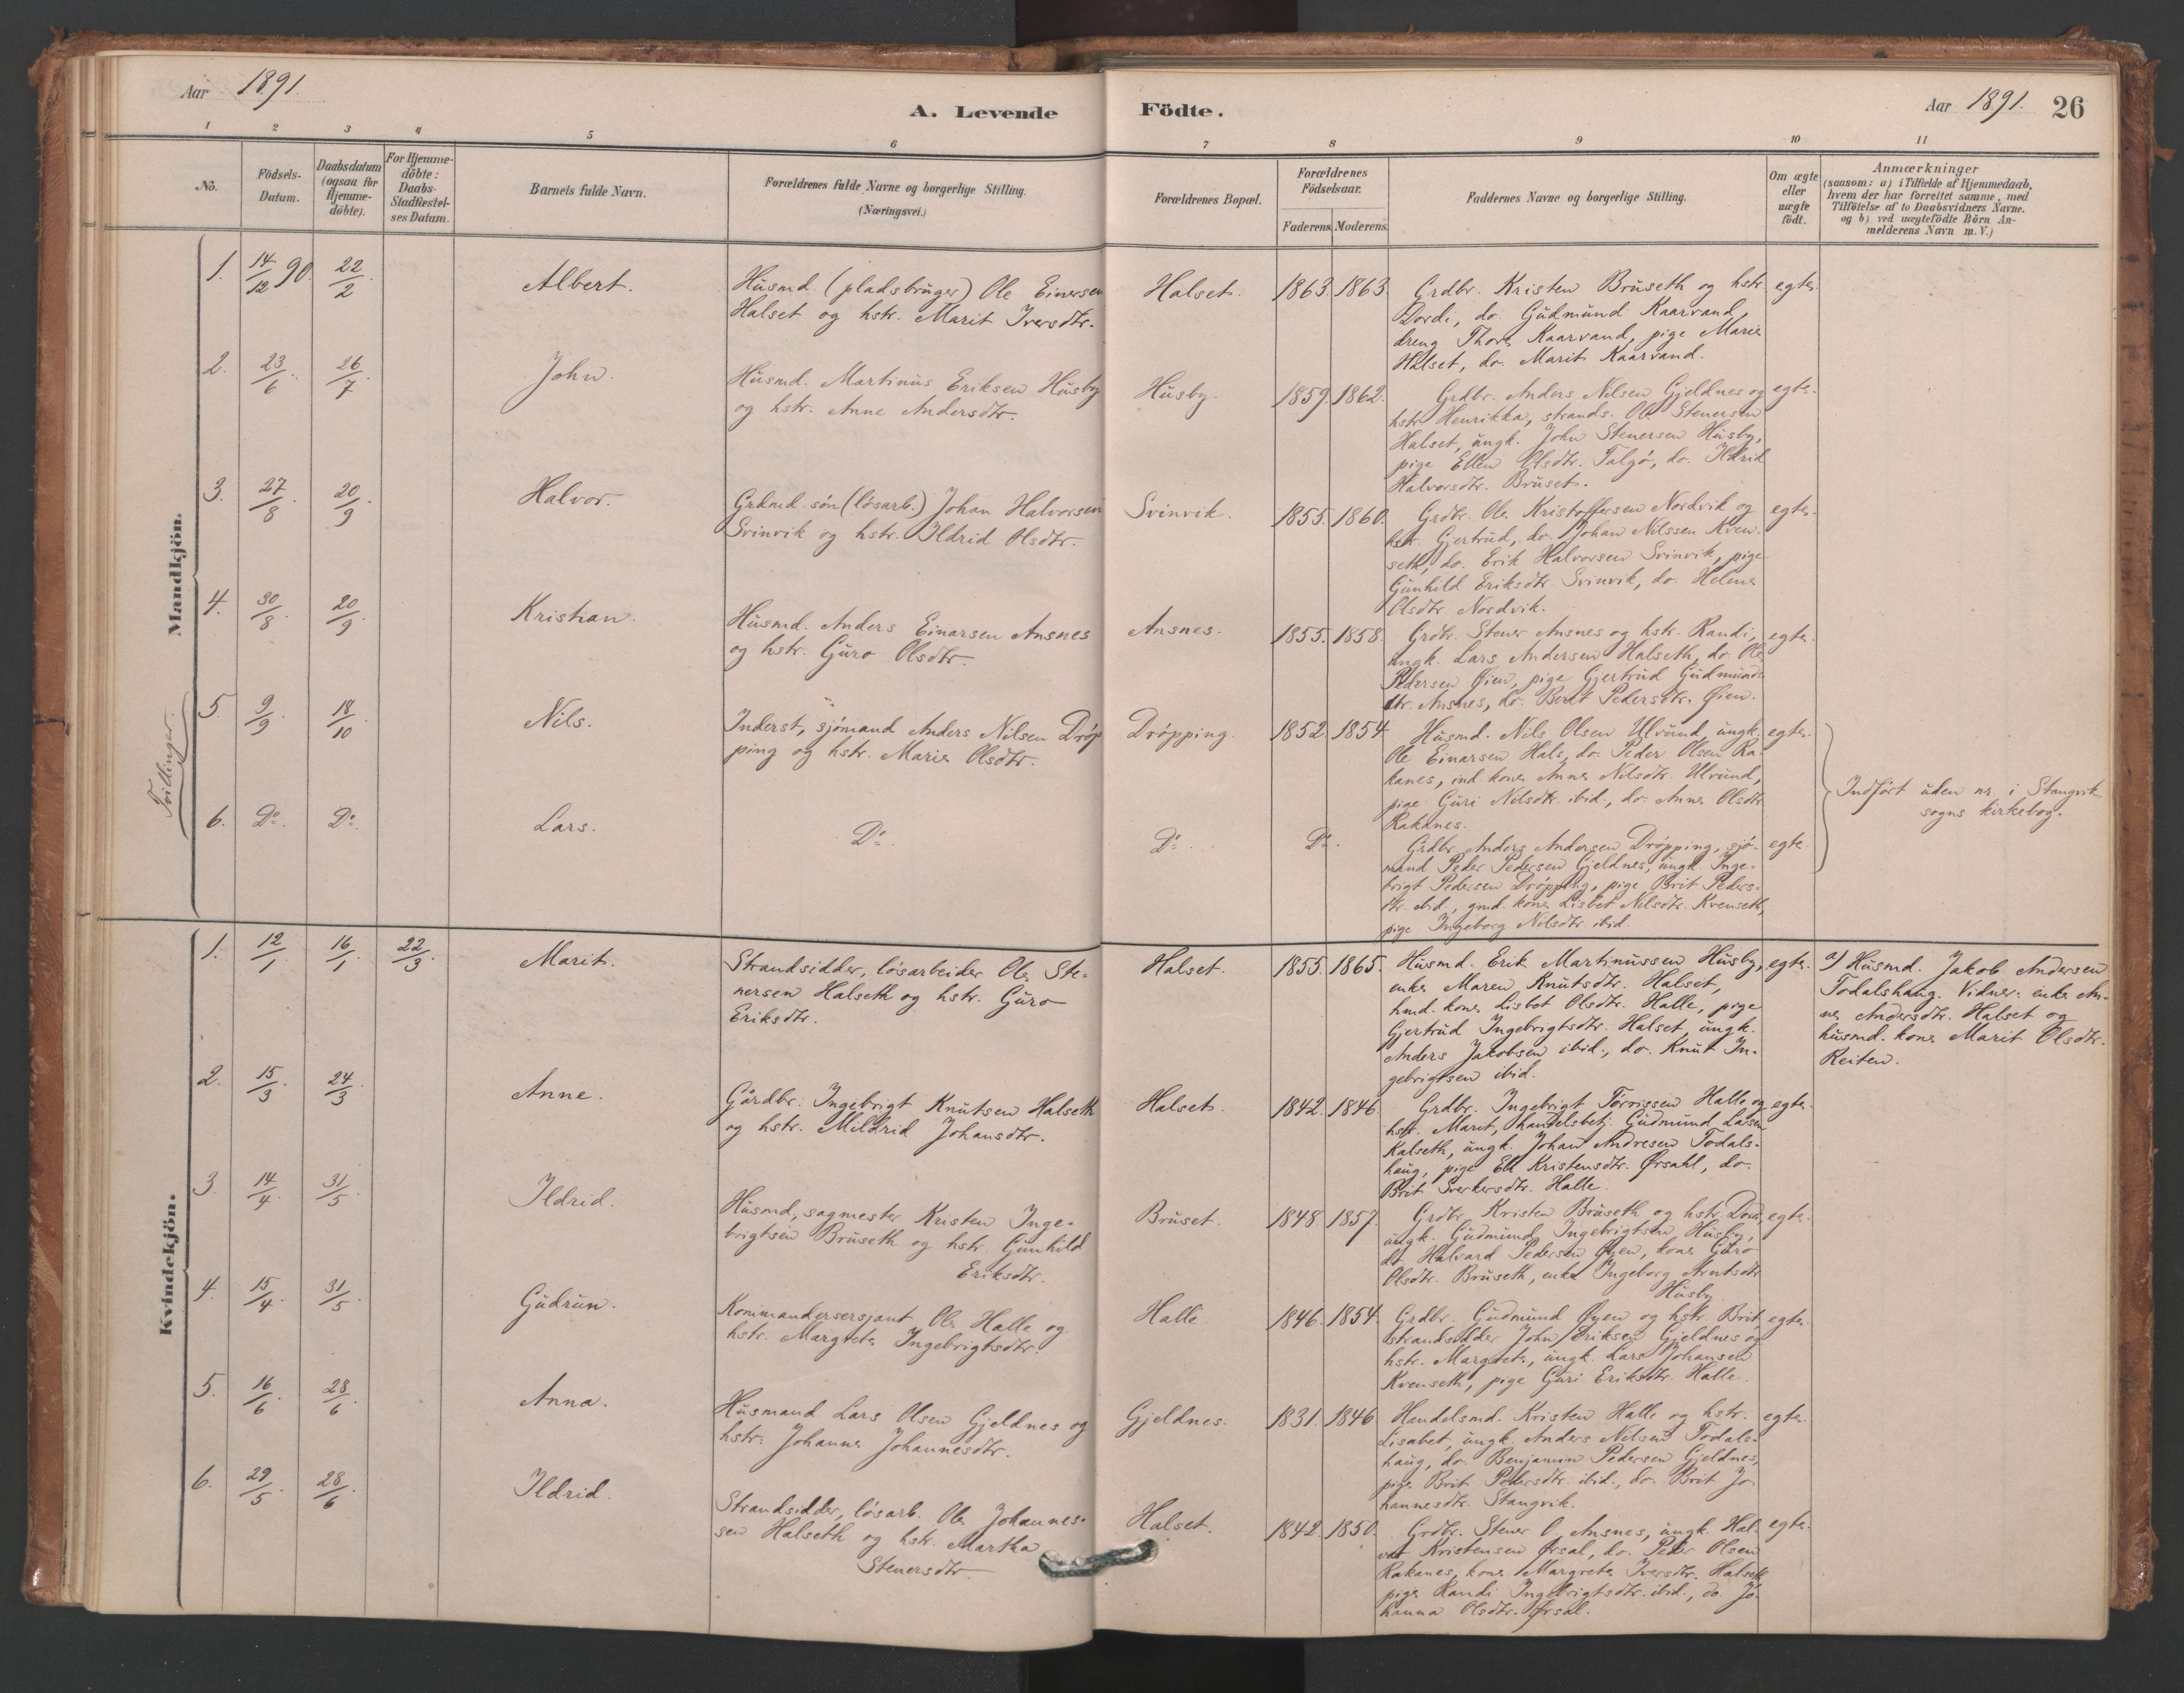 Aar 1891.
A. Levende Födte.
Aar 1891. 26
1 2 3 4 5 6 7 8 9 10 11
No.
Födsels-
Datum.
Daabsdatum
(ogsaa for
Hjemme-
döbte).
For Hjemme-
döbte:
Daabs-
Stadfæstel-
ses Datum.
Barnets fulde Navn.
Forældrenes fulde Navne og borgerlige Stilling.
(Næringsvei.)
Forældrenes Bopæl.
Forældrenes
Födselsaar.
Faderens. Moderens.
Faddernes Navne og borgerlige Stilling.
Om ægte
eller
uægte
födt.
Anmærkninger
(saasom: a) i Tilfælde af Hjemmedaab,
hvem der har forrettet samme, med
Tilföielse af to Daabsvidners Navne,
og b) ved uægtefödte Börn An-
melderens Navn m. V.)
Mandkjön.
1. 14/12 90. 22/2. Albert.
Husmd. (pladsbruger) Ole Einersen
Halset og hstr. Marit Iversdtr.
Halset. 1863. 1863.
Grdbr. Kristen Bruseth og hstr.
Dordi, do. Gudmund Kaarvand,
dreng Thore Kaarvand, pige Marie
Halset, do. Marit Kaarvand.
egte.
2. 23/6. 26/7. John.
Husmd. Martinus Eriksen Husby
og hstr. Anne Andersdtr.
Husby. 1859. 1862.
Grdbr. Anders Nilsen Gjeldnes og
hstr. Henrikka, strands. Ole Stenersen
Halset, ungk. John Stenersen Husby,
pige Ellen Olsdtr. Talgö, do. Ildrid
Halvorsdtr. Bruset.
egte.
3. 27/8. 20/9. Halvor.
Grdmd. sön (lösarb.) Johan Halvorsen
Svinvik og hstr. Ildrid Olsdtr.
Svinvik. 1855. 1860.
Grdbr. Ole Kristoffersen Nordvik og
hstr. Gjertrud, do. Johan Nilssen Kven-
seth, do. Erik Halvorsen Svinvik, pige
Gunhild Eriksdtr. Svinvik, do. Helene
Olsdtr. Nordvik.
egte.
4. 30/8. 20/9. Kristian.
Husmd. Anders Einarsen Ansnes
og hstr. Guro Olsdtr.
Ansnes. 1855. 1858.
Grdbr. Stener Ansnes og hstr. Randi,
ungk. Lars Andersen Halseth, do. Ole
Pedersen Öien, pige Gjertrud Gudmunds-
dtr. Ansnes, do. Beret Pedersdtr. Öien.
egte.
Tvillinger.
5. 9/9. 18/10. Nils.
Inderst, sjömand Anders Nilsen Dröp
ping og hstr. Marie Olsdtr.
Dröpping. 1852. 1854.
Husmd. Nils Olsen Ulvund, ungk.
Ole Einarsen Hals, do. Peder Olsen Ra-
kanes, ind. kone Anne Nilsdtr. Ulvund,
pige Guri Nilsdtr. ibid., do. Anne Olsdtr.
Rakanes.
egte.
Indfört uden nr. i Stangvik
sogns kirkebog.
6. Do. Do. Lars.
Do.
Do. Do.
Grdbr. Anders Andersen Dröpping, sjö-
mand Peder Pedersen Gjeldnes, ungk. Inge-
brigt Pedersen Dröpping, pige Brit Peders-
dtr. ibid., gmd. kone Lisbet Nilsdtr. Kvenseth,
pige Ingeborg Nilsdtr. ibid.
egte.
Kvindekjön.
1. 12/1. 16/1. 22/3. Marit.
Strandsidder, lösarbeider Ole Ste-
nersen Halseth og hstr. Guro
Eriksdtr.
Halset. 1855. 1865.
Husmd. Erik Martinussen Husby,
enke Maren Knutsdtr. Halset,
hmd. kone Lisbet Olsdtr. Halle, pige
Gjertrud Ingebrigtsdtr. Halset, ungk.
Anders Jakobsen ibid., do. Knut In-
gebrigtsen ibid.
egte.
a) Husmd. Jakob Andersen
Todalshaug. Vidner: enke An-
ne Andersdtr. Halset og
husmd. kone Marit Olsdtr.
Reiten.
2. 15/3. 24/3. Anne.
Gårdbr. Ingebrigt Knutsen Halseth
og hstr. Mildrid Johansdtr.
Halset. 1842. 1846
Grdbr. Ingebrigt Torrissen Halle og
hstr. Marit, handelsbetj. Gudmund Larsen
Kalseth, ungk. Johan Andresen Todals-
haug, pige Ell Kristensdtr. Örsahl, do.
Brit Sverkersdtr. Halle.
egte.
3. 14/4. 31/5. Ildrid.
Husmd, sagmester Kristen Inge-
brigtsen Bruseth og hstr. Gunhild
Eriksdtr.
Bruset. 1848. 1857.
Grdbr. Kristen Bruseth og hstr. Dordi,
ungk. Gudmund Ingebrigtsen Husby,
do. Halvard Pedersen Öyen, kone Guro
Olsdtr. Bruseth, enke Ingeborg Arntsdtr.
Husby.
egte.
4. 15/4. 31/5. Gudrun.
Kommandersersjant Ole Halle og
hstr. Margrete Ingebrigtsdtr.
Halle. 1846. 1854.
Grdbr. Gudmund Öyen og hstr. Brit
strandsidder John Eriksen Gjeldnes og
hstr. Margrete, ungk. Lars Johansen
Kvenseth, pige Guri Eriksdtr. Halle.
egte.
5. 16/6. 28/6. Anna.
Husmand Lars Olsen Gjeldnes og
hstr. Johanne Johannesdtr.
Gjeldnes. 1831. 1846
Handelsmd. Kristen Halle og hstr.
Lisabet, ungk. Anders Nilsen Todals-
haug, do. Benjamin Pedersen Gjeldnes,
pige Brit Pedersdtr. ibid., do. Brit Jo-
hannesdtr. Stangvik.
egte.
6. 29/5. 28/6. Ildrid.
Strandsidder, lösarb. Ole Johannes-
sen Halseth og hstr. Martha
Stenersdtr.
Halset. 1842. 1850.
Grdbr. Stener O. Ansnes, ungk. Hal-
vor Kristensen Örsal, do. Peder Olsen
Rakanes, kone Margrete Iversdtr. Halseth
pige Randi Ingebrigtsdtr. ibid., do. Jo-
hanna Olsdtr. Örsal.
egte.